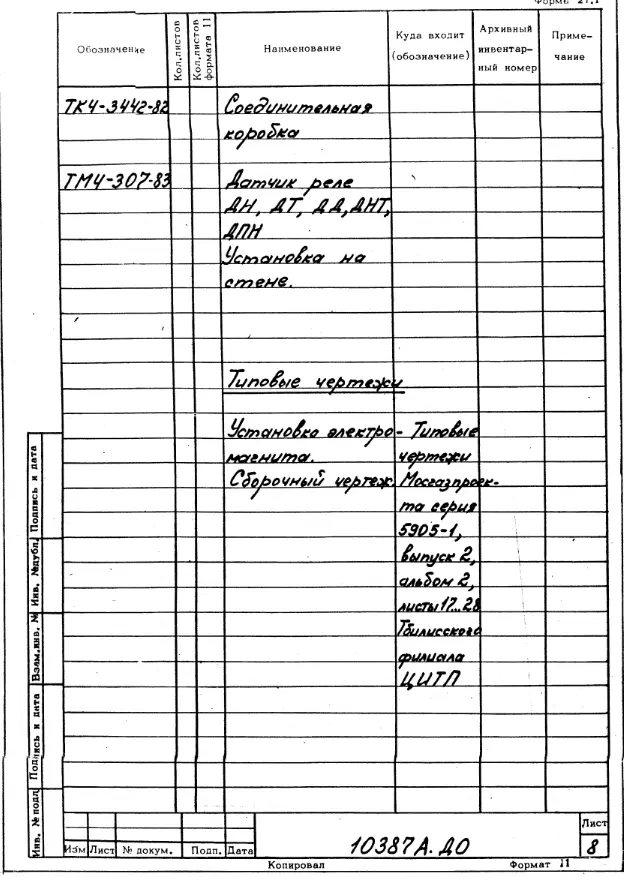 Форма 27.1
Обозначение
Кол.листов
Кол.листов формата 11
Наименование
Куда входит (обозначение)
Архивный инвентарный номер
Примечание
ТК4-3442-82 Соединительная
коробка
ТМ4-307-83 Датчик реле
ДН, ДТ, ДД, ДНТ,
ДПН
Установка на
стене.
Типовые чертежи
Установка электро- Типовые
магнита. чертежи
Сборочный чертеж. Мосгазпроек-
та серия
5905-1,
выпуск 2,
альбом 2,
листы 17...28
Тбилисского
филиала
ЦИТП
Инв. № подл. Подпись и дата Взам.инв. № Инв. №дубл. Подпись и дата
Изм Лист № докум. Подп. Дата
10387А.ДО
Лист
8
Копировал Формат 11